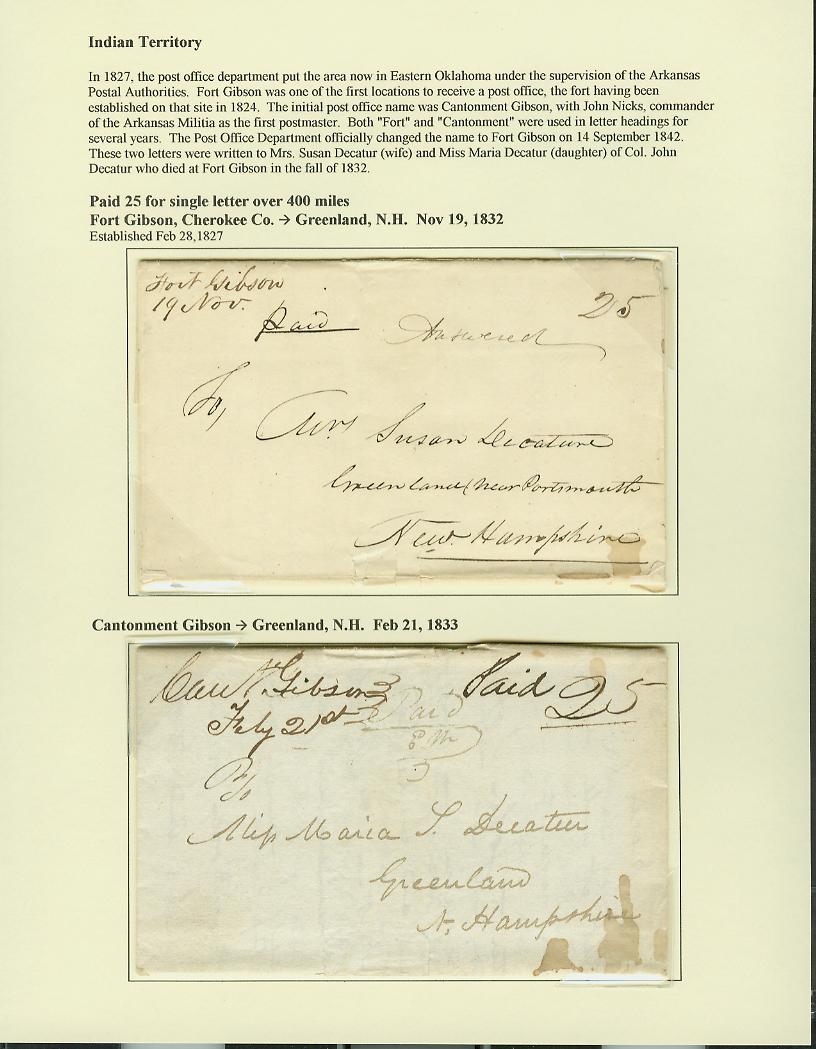 Indian Territory
In 1827, the post office department put the area now in Eastern Oklahoma under the supervision of the Arkansas
Postal Authorities.  Fort Gibson was one of the first locations to receive a post office, the fort having been
established on that site in 1824.  The initial post office name was Cantonment Gibson, with John Nicks, commander
of the Arkansas Militia as the first postmaster.  Both "Fort" and "Cantonment" were used in letter headings for
several years.  The Post Office Department officially changed the name to Fort Gibson on 14 September 1842.
These two letters were written to Mrs. Susan Decatur (wife) and Miss Maria Decatur (daughter) of Col. John
Decatur who died at Fort Gibson in the fall of 1832.
Paid 25 for single letter over 400 miles
Fort Gibson, Cherokee Co. → Greenland, N.H.  Nov 19, 1832
Established Feb 28,1827
Fort Gibson
19 Nov.
25
Paid
Answered
To,
Mrs Susan Decature
Greenland (near Portsmouth
New Hampshire
Cantonment Gibson → Greenland, N.H.  Feb 21, 1833
Cant Gibson
Paid 25
Feby 21st
Paid
Miss Maria S. Decatur
Greenland
N. Hampshire